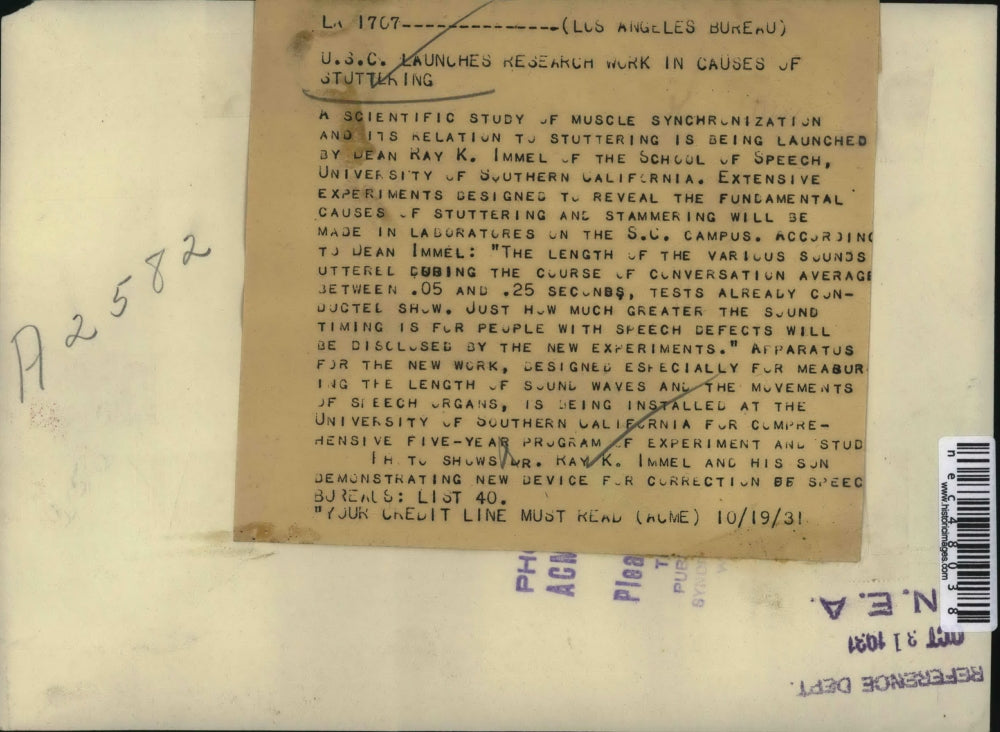 LA 1707---------------(LOS ANGELES BUREAU)
U.S.C. LAUNCHES RESEARCH WORK IN CAUSES OF
STUTTERING
A SCIENTIFIC STUDY OF MUSCLE SYNCHRONIZATION
AND ITS RELATION TO STUTTERING IS BEING LAUNCHED
BY DEAN RAY K. IMMEL OF THE SCHOOL OF SPEECH,
UNIVERSITY OF SOUTHERN CALIFORNIA. EXTENSIVE
EXPERIMENTS DESIGNED TO REVEAL THE FUNDAMENTAL
CAUSES OF STUTTERING AND STAMMERING WILL BE
MADE IN LABORATORES ON THE S.C. CAMPUS. ACCORDING
TO DEAN IMMEL: "THE LENGTH OF THE VARIOUS SOUNDS
UTTERED DURING THE COURSE OF CONVERSATION AVERAGE
BETWEEN .05 AND .25 SECONDS, TESTS ALREADY CON-
DUCTED SHOW. JUST HOW MUCH GREATER THE SOUND
TIMING IS FOR PEOPLE WITH SPEECH DEFECTS WILL
BE DISCLOSED BY THE NEW EXPERIMENTS." APPARATUS
FOR THE NEW WORK, DESIGNED ESPECIALLY FOR MEASUR
ING THE LENGTH OF SOUND WAVES AND THE MOVEMENTS
OF SPEECH ORGANS, IS BEING INSTALLED AT THE
UNIVERSITY OF SOUTHERN CALIFORNIA FOR COMPRE-
HENSIVE FIVE-YEAR PROGRAM OF EXPERIMENT AND STUD
PHOTO SHOWS DR. RAY K. IMMEL AND HIS SON
DEMONSTRATING NEW DEVICE FOR CORRECTION OF SPEEC
BUREAUS: LIST 40.
"YOUR CREDIT LINE MUST READ (ACME) 10/19/31
A2582
PH
ACM
Plea
T
PUB
SYND
W
nec48038
www.historicimages.com
N.E.A.
OCT 31 1931
REFERENCE DEPT.